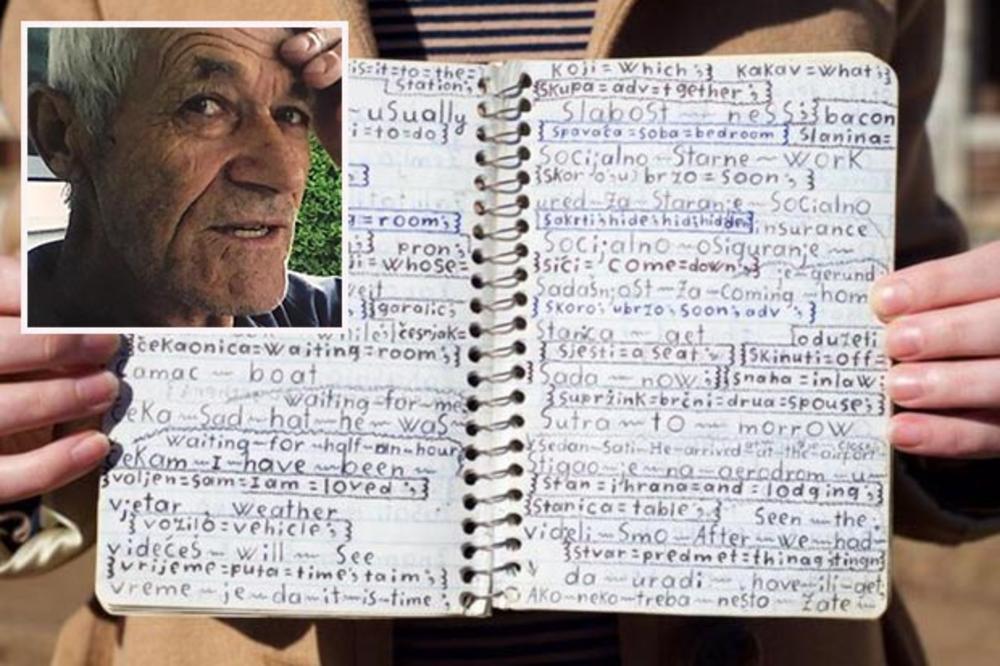 is=it=to=the=}
station;
~ usually
i=to=do}
=room;}
pron;
ji=whose=
{garalic;
while; česnjak=
čekaonica=waiting=room;}
amac ~ boat
waiting-for-me
čeka ~ Sad ~ hat ~ he ~ was ~
waiting-for-half-on-hour
čekam ~ I ~ have ~ been ~
}voljen=sam=I am=loved ;}
vjetar , weather
{vozilo=vehicle;}
videćeš ~ will ~ See
{vrijeme=puta=time's taim;}
vreme ~ je ~ da ~ it ~ is ~ time ;
koji = which ;} kakav=what;}
{skupa=adv=t gether ;}
Slabost ~ neSS;} bacon
{spavaća=soba=bedroom} slanina=
Soci;alno ~ Starne ~ work
brzo = soon ;}
ured ~ za ~ Staran;e ~ Socialno
{sakrti;hide;hid;hidden; insurance
Soci;alno ~ oSiguran;e ~
{sići= come=down;} ;e-gerund
Sadašn;oSt ~ za ~ coming ~ hom
{skoro; ubrzo; soon; adv ;}
Stanica ~ get [oduzeti
{sjesti=a seat ;} {Skinuti=off=
Sada ~ now ;} {snaha=inlaw;
{supržink=brčni=drua=spouse;}
Sutra ~ to ~ morrow
Sedan ~ Sati ~ He-arrived ~ at ~ the ~ airport ~ clock
Stigao ~ je ~ na ~ aerodrom ~ u ~
{stan=ihrana=and=lodging;}
{Stanica=table ;} Seen ~ the ;
videli ~ Smo ~ After ~ we ~ had ~
{stvar=predmet=thing
da ~ uradi ~ have ~ ili ~ get
AKo ~ neko ~ treba ~ nešto ~ Zate ~